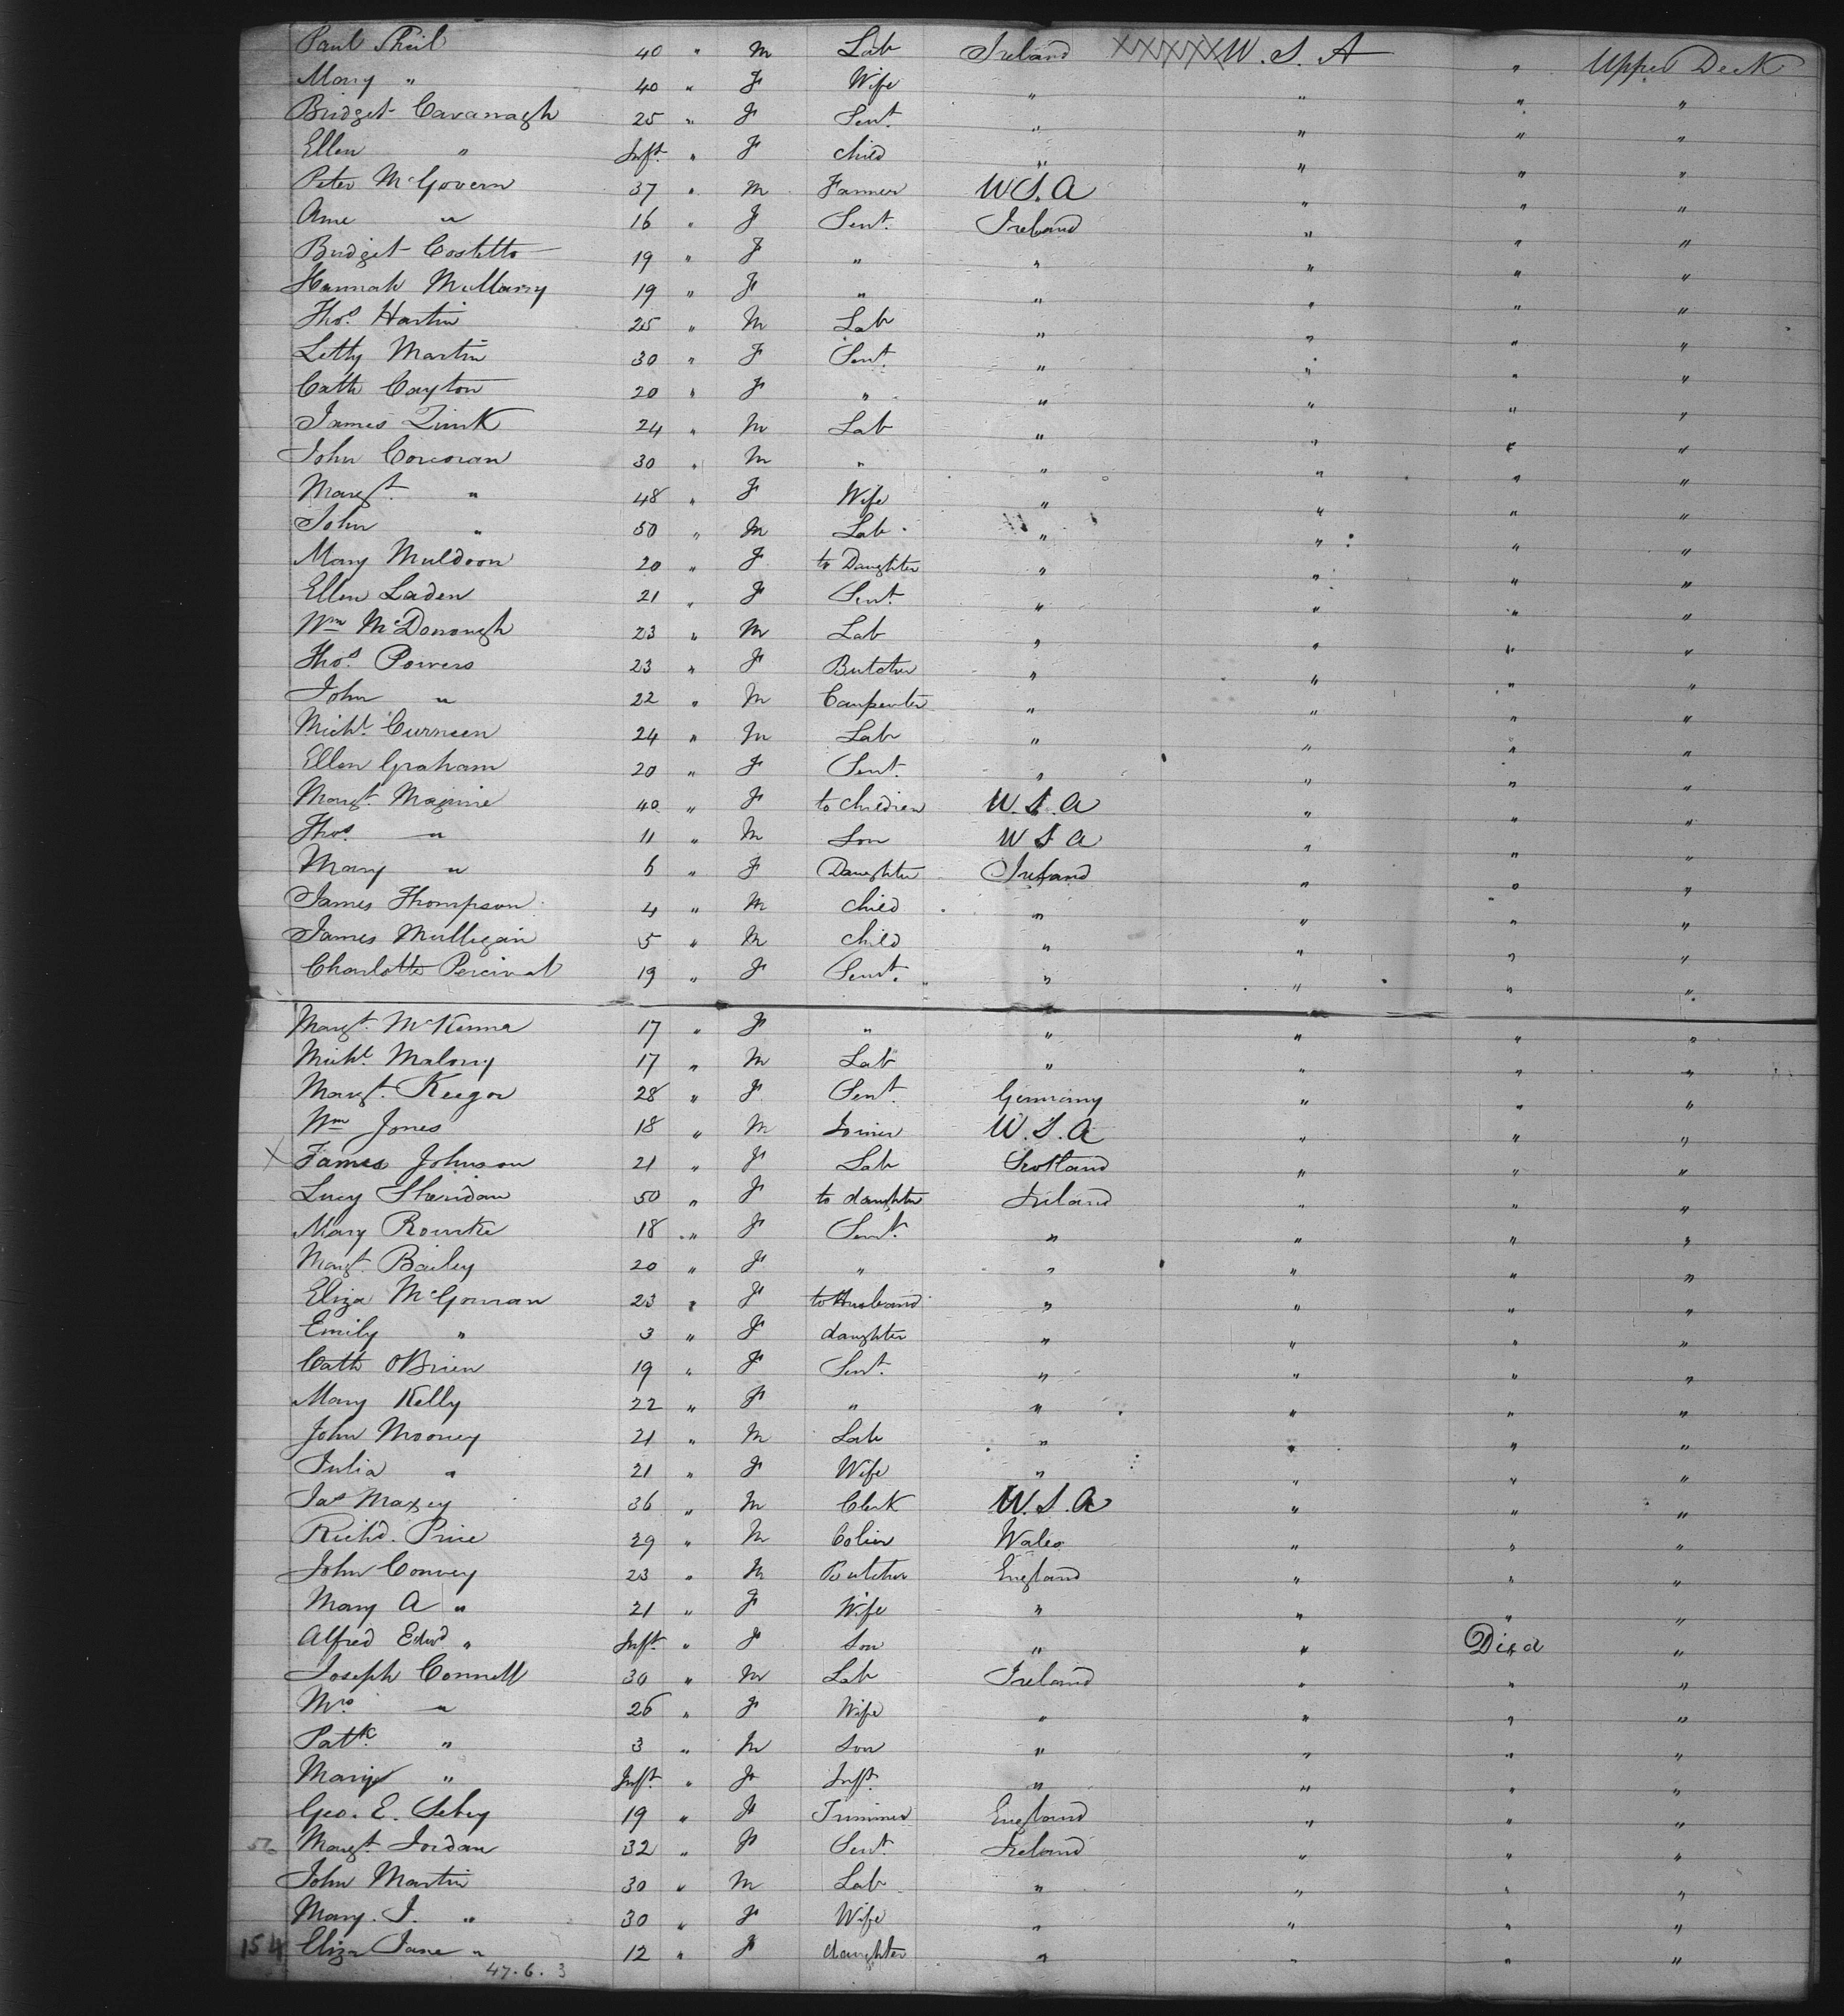 Paul Sheil 40 " M Lab Ireland XXXXX U. S. A " Upper Deck
Mary " 40 " F Wife " " " "
Bridget Cavanagh 25 " F Sevt. " " " "
Ellen " Inft. " F Child " " " "
Peter McGovern 37 " M Farmer U.S.A " " "
Ame " 16 " F Sevt. Ireland " " "
Bridget Costello 19 " F " " " " "
Hannah 19 " F " " " " "
Thos. Hartin 25 " M Lab " " " "
Letty Martin 30 " F Sevt. " " " "
Cath Cayton 20 " F " " " " "
James Quirk 24 " M Lab " " " "
John Corcoran 30 " M " " " " "
Margt. " 48 " F Wife " " " "
John " 50 " M Lab " " " "
Mary Muldoon 20 " F to Daughter " " " "
Ellen Laden 21 " F Sevt. " " " "
Wm McDonough 23 " M Lab " " " "
Thos. Powers 23 " F Butcher " " " "
John " 22 " M Carpenter " " " "
Michl. Curneen 24 " M Lab " " " "
Ellen Graham 20 " F Sevt. " " " "
Margt. Maguire 40 " F to children U.S.A " " "
Thos " 11 " M Son U S A " " "
Mary " 6 " F Daughter Ireland " " "
James Thompson 4 " M Child " " " "
James Mulligan 5 " M Child " " " "
Charlotte Percival 19 " F Sevt. " " " "
Margt. McKenna 17 " F " " " " "
Michl. Malony 17 " M Lab " " " "
Margt. Keegor 28 " F Sevt. Germany " " "
Wm Jones 18 " M Joiner U.S.A " " "
X James Johnson 21 " F Lab Scotland " " "
Lucy Sheridan 50 " F to daughter Ireland " " "
Mary Rourke 18 " F Sevt. " " " "
Margt. Bailey 20 " F " " " " "
Eliza McGowran 23 " F to Husband " " " "
Emily " 3 " F daughter " " " "
Cath OBrien 19 " F Sevt. " " " "
Mary Kelly 22 " F " " " " "
John Mooney 21 " M Lab " " " "
Julia " 21 " F Wife " " " "
Jas Maxey 36 " M Clerk U.S.A " " "
Richd. Price 29 " M Colier Wales " " "
John Convey 23 " M Butcher England " " "
Mary A " 21 " F Wife " " " "
Alfred Edwd " Inft. " F Son " " Died "
Joseph Connell 30 " M Lab Ireland " " "
Mrs " 26 " F Wife " " " "
Patk. " 3 " M Son " " " "
" Inft. " F Inft. " " " "
Geo. E. 19 " F Trimmer England " " "
Margt. Jordan 32 " F Sevt. Ireland " " "
John Martin 30 " M Lab " " " "
Mary. J. " 30 " F Wife " " " "
154 Eliza Jane " 12 " F daughter " " " "
47.6.3